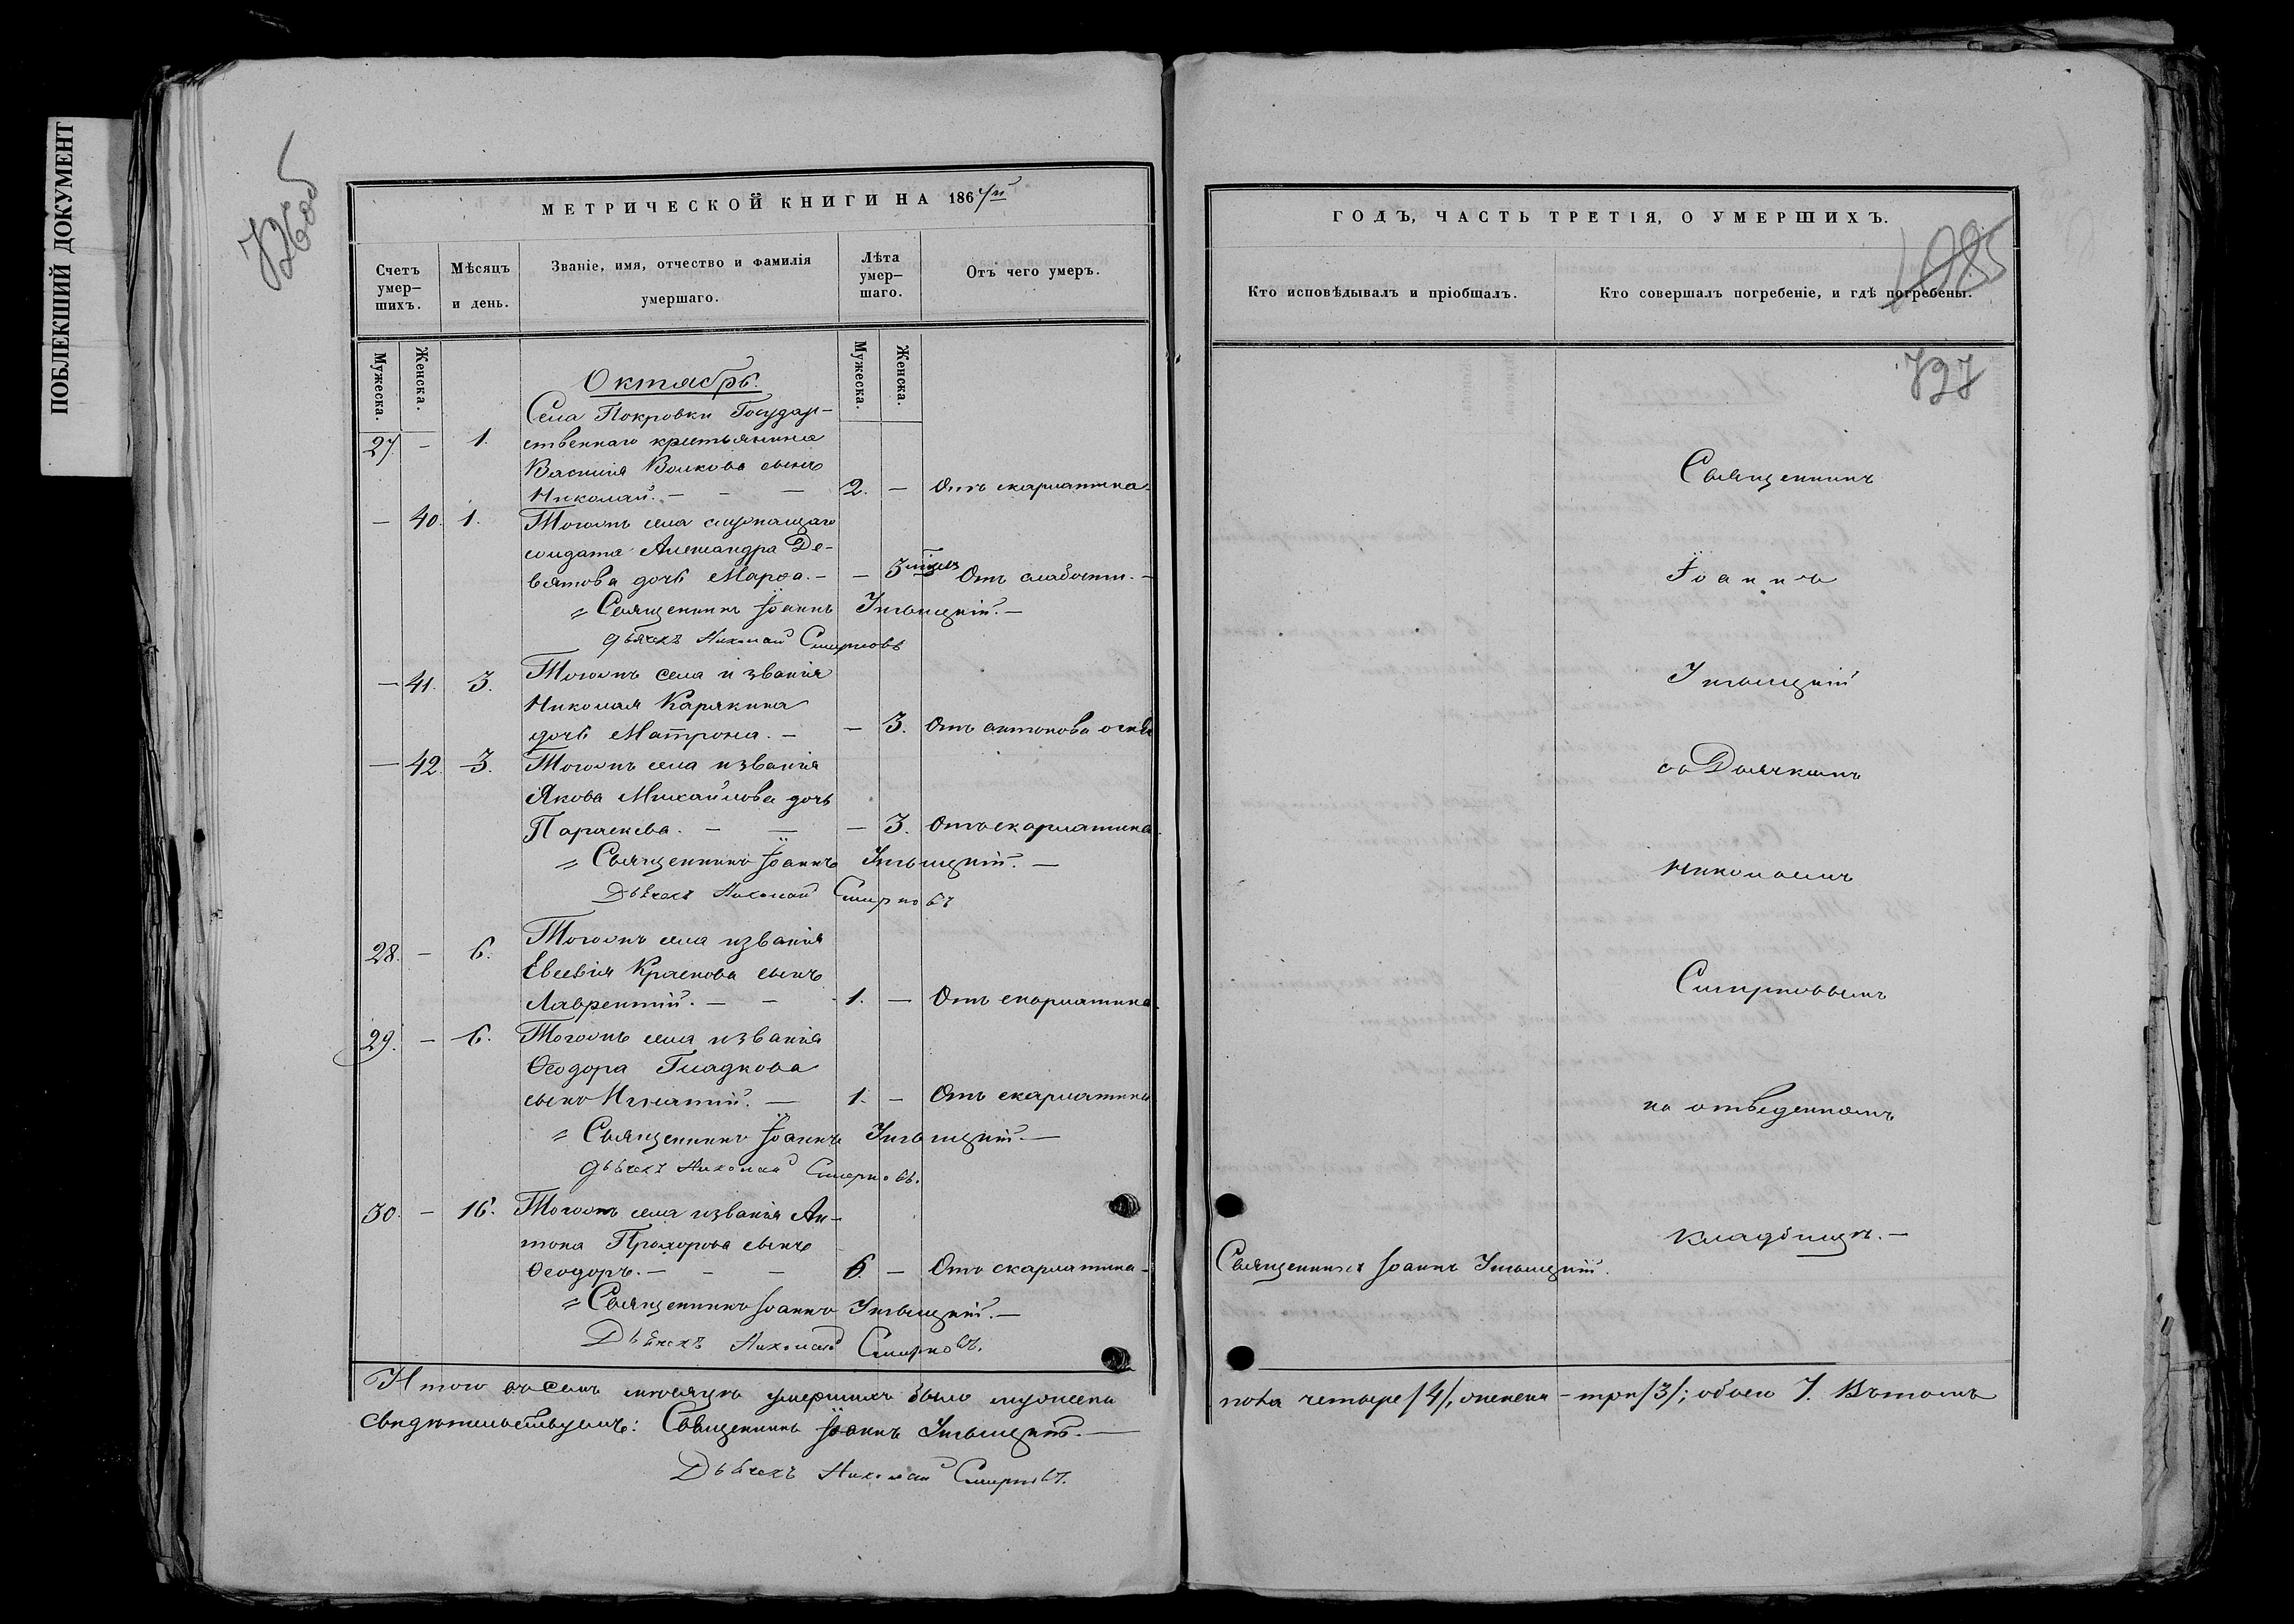 ПОБЛЕКШИЙ ДОКУМЕНТ
726об
МЕТРИЧЕСКОЙ КНИГИ НА 1867й
Счетъ умер-шихъ.
Мѣсяцъ и день.
Званіе, имя, отчество и фамилія умершаго.
Лѣта умер-шаго.
Отъ чего умеръ.
Мужеска.
Женска.
Мужеска.
Женска.
Октябрь.
Села Покровки Государ-
27. - 1. ственнаго крестьянина
Василія Волкова сынъ
Николай. - - - 2. - Отъ скарлатина.
- 40. 1. Тогожъ села служащаго
солдата Александра Де-
вятова дочь Марѳа. - - 3 Отъ слабости. -
Священникъ Іоаннъ
дьячекъ Николай Смирновъ
- 41. 3. Тогожъ села и званія
Николая Карякина
дочь Матрона. - - 3. Отъ антонова огня
- 42. 3. Тогожъ села и званія
Якова Михайлова дочь
Параскева. - - - 3. Отъ скарлатина.
Священникъ Іоаннъ
Дьячекъ Николай Смирновъ
28. - 6. Тогожъ села и званія
Евсевія Краснова сынъ
Лаврентій. - - 1. - Отъ скарлатина.
29. - 6. Тогожъ села и званія
Ѳеодора Гладкова
сынъ Игнатій. - 1. - Отъ скарлатины
Священникъ Іоаннъ
Дьячекъ Николай Смирновъ.
30. - 16. Тогожъ села и званія Ан-
тона Прохорова сынъ
Ѳеодоръ. - - - 6. - Отъ скарлатина -
Священникъ Іоаннъ
Дьячекъ Николай Смирновъ.
Итого въ семъ мѣсяцѣ умершихъ было мужеска
свидѣтельствуемъ: Священникъ Іоаннъ
Дьячекъ Николай Смирновъ.
ГОДЪ, ЧАСТЬ ТРЕТІЯ, О УМЕРШИХЪ.
1085
Кто исповѣдывалъ и пріобщалъ.
Кто совершалъ погребеніе, и гдѣ погребены.
727
Священникъ
Іоаннъ
съ Дьячкомъ
Николаемъ
Смирновымъ
на отведенномъ
кладбищѣ. -
Священникъ Іоаннъ
пола четыре /4/, женска - три /3/; обоего 7. Въ томъ